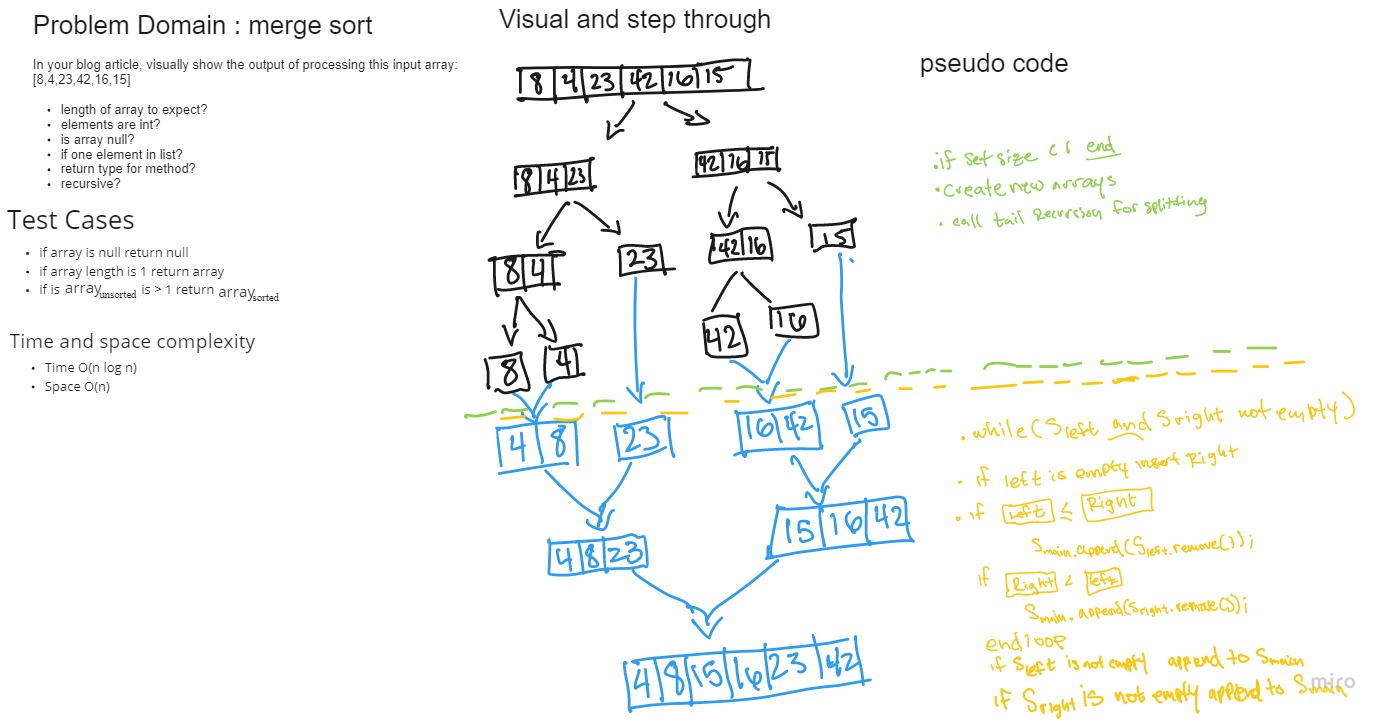 Problem Domain : merge sort
In your blog article, visually show the output of processing this input array:
[8,4,23,42,16,15]
• length of array to expect?
• elements are int?
• is array null?
• if one element in list?
• return type for method?
• recursive?
Test Cases
• if array is null return null
• if array length is 1 return array
• if is array unsorted is > 1 return array sorted
Time and space complexity
• Time O(n log n)
• Space O(n)
Visual and step through
8 4 23 42 16 15
8 4 23
42 16 15
8 4
23
42 16
15
8
4
42
16
4 8
23
16 42
15
4 8 23
15 16 42
4 8 15 16 23 42
pseudo code
• if set size end
• create new arrays
• call tail Recursion for splitting
• while (Sleft and Sright not empty)
• if left is empty insert Right
• if Left ≤ Right
Smain.append(Sleft.remove());
if Right < left
Smain.append(Sright.remove());
end loop
if Sleft is not empty append to Smain
if Sright is not empty append to Smain
miro